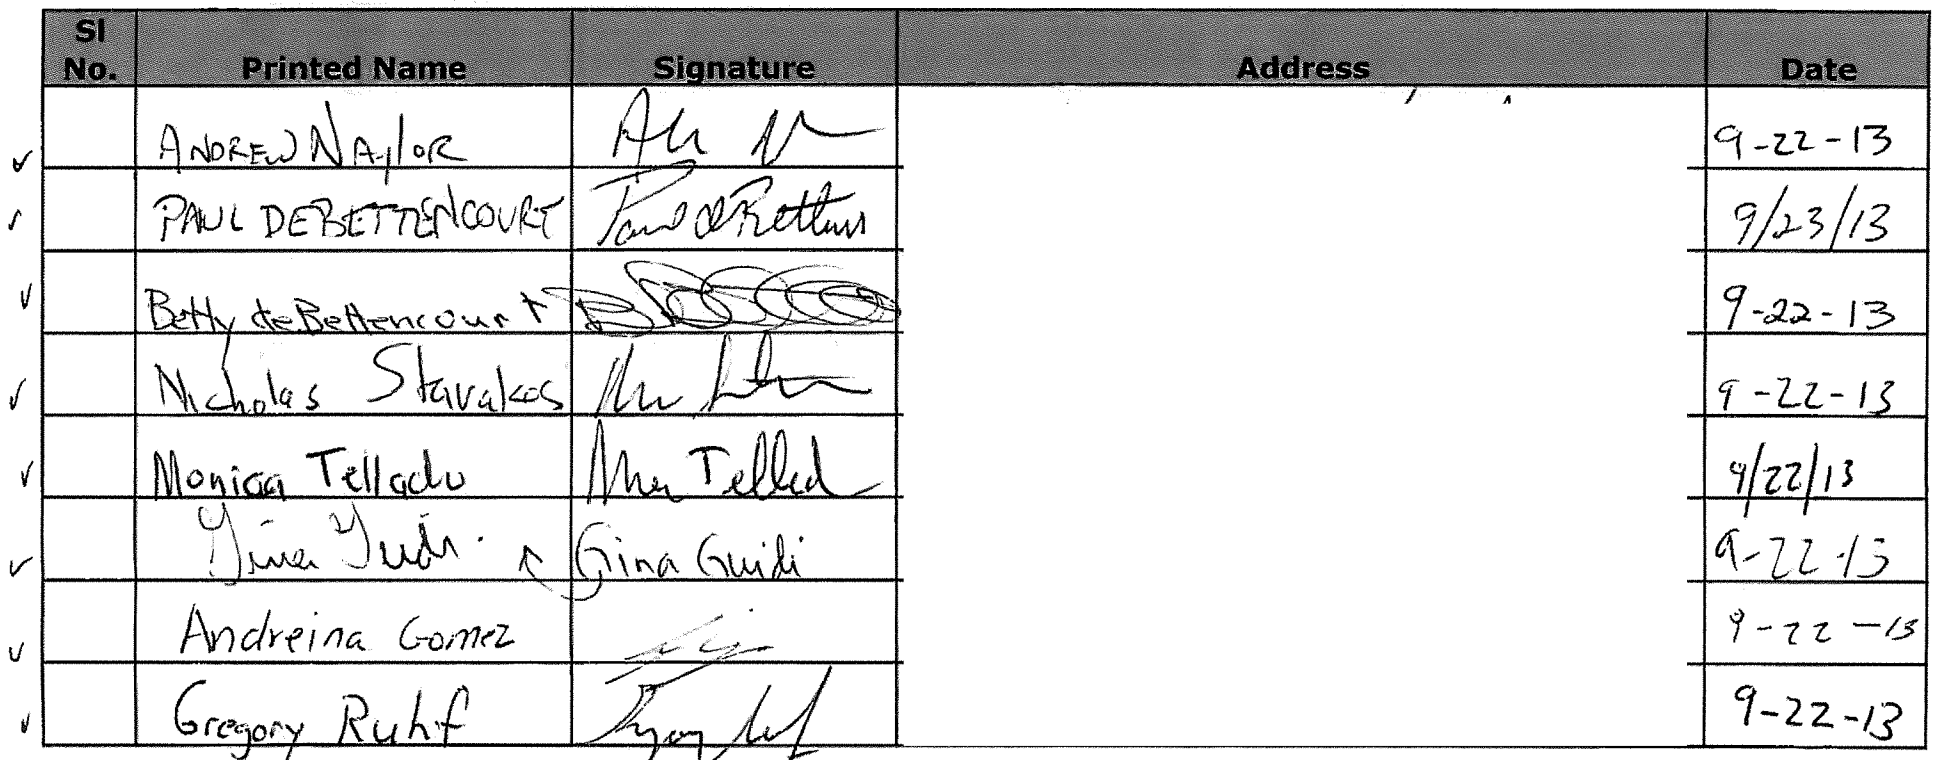 Sl No. Printed Name Signature Address Date
ANDREW NAylOR 9-22-13
PAUL DEBETTENCOURT 9/23/13
Betty deBettencourt 9-22-13
Nicholas Stavakos 9-22-13
Monica Tellado 9/22/13
Gina Guidi 9-22-13
Andreina Gomez 9-22-13
Gregory Ruhf 9-22-13